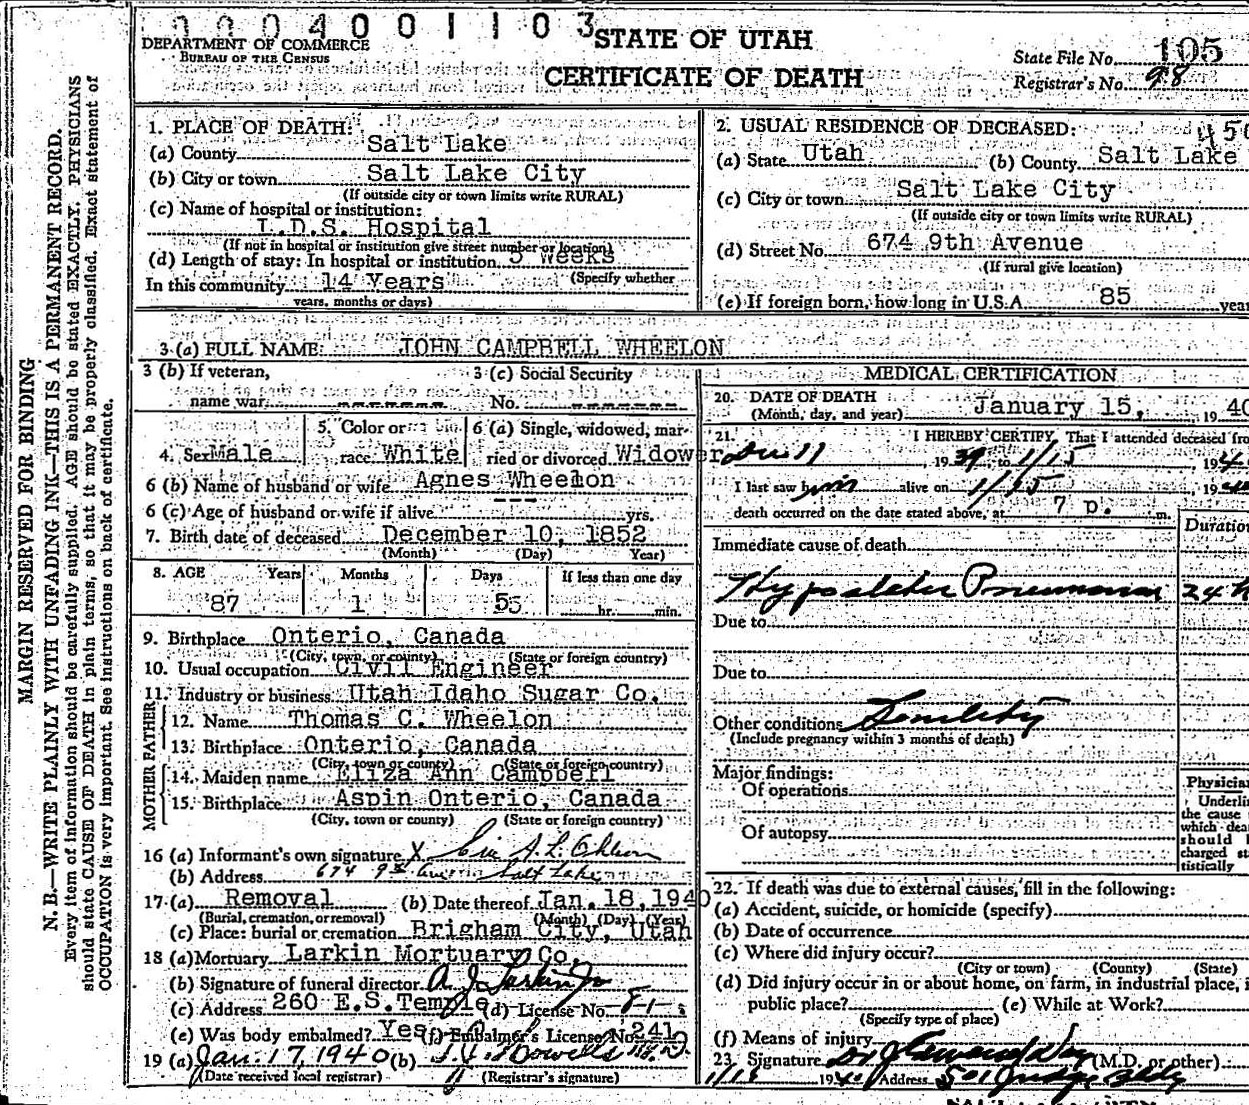 0004001103
DEPARTMENT OF COMMERCE
BUREAU OF THE CENSUS
STATE OF UTAH
CERTIFICATE OF DEATH
State File No. 105
Registrar's No. 98
MARGIN RESERVED FOR BINDING
N. B.—WRITE PLAINLY WITH UNFADING INK—THIS IS A PERMANENT RECORD.
Every item of information should be carefully supplied. AGE should be stated EXACTLY. PHYSICIANS
should state CAUSE OF DEATH in plain terms, so that it may be properly classified. Exact statement of
OCCUPATION is very important. See instructions on back of certificate.
1. PLACE OF DEATH:
(a) County Salt Lake
(b) City or town Salt Lake City
(If outside city or town limits write RURAL)
(c) Name of hospital or institution:
L.D.S. Hospital
(If not in hospital or institution give street number or location)
(d) Length of stay: In hospital or institution weeks
(Specify whether
In this community 14 Years
years, months or days)
2. USUAL RESIDENCE OF DECEASED:
(a) State Utah (b) County Salt Lake
(c) City or town Salt Lake City
(If outside city or town limits write RURAL)
(d) Street No. 674 9th Avenue
(If rural give location)
(e) If foreign born, how long in U.S.A. 85 year
3 (a) FULL NAME JOHN CAMPBELL WHEELON
3 (b) If veteran,
name war
3 (c) Social Security
No.
4. Sex Male
5. Color or
race White
6 (a) Single, widowed, mar-
ried or divorced Widower
6 (b) Name of husband or wife Agnes Wheelon
6 (c) Age of husband or wife if alive --- yrs.
7. Birth date of deceased December 10, 1852
(Month) (Day) Year)
8. AGE Years Months Days If less than one day
87 1 5 hr. min.
9. Birthplace Onterio, Canada
(City, town, or county) (State or foreign country)
10. Usual occupation Civil Engineer
11. Industry or business Utah Idaho Sugar Co.
FATHER
12. Name Thomas C. Wheelon
13. Birthplace Onterio, Canada
(City, town or county) (State or foreign country)
MOTHER
14. Maiden name Eliza Ann Campbell
15. Birthplace Aspin Onterio, Canada
(City, town or county) (State or foreign country)
16 (a) Informant's own signature X
(b) Address 674 9th Ave Salt Lake
17 (a) Removal (b) Date thereof Jan. 18, 1940
(Burial, cremation, or removal) (Month) (Day) (Year)
(c) Place: burial or cremation Brigham City, Utah
18 (a) Mortuary Larkin Mortuary Co.
(b) Signature of funeral director A J Larkin Jr
(c) Address 260 E.S.Temple (d) License No.
(e) Was body embalmed? Yes (f) Embalmer's License No. 241
19 (a) Jan. 17, 1940 (b)
(Date received local registrar) (Registrar's signature)
MEDICAL CERTIFICATION
20. DATE OF DEATH
(Month, day, and year) January 15, 19 40
21. I HEREBY CERTIFY, That I attended deceased from
Dec 11, 1939, to 1/15, 194
I last saw him alive on 1/15, 1940
death occurred on the date stated above, at 7 p. m.
Duration
Immediate cause of death
Pneumonia 24 h
Due to
Due to
Other conditions Senility
(Include pregnancy within 3 months of death)
Major findings:
Of operations
Of autopsy
Physician
Underline
the cause
which dea
should b
charged st
tistically
22. If death was due to external causes, fill in the following:
(a) Accident, suicide, or homicide (specify)
(b) Date of occurrence
(c) Where did injury occur?
(City or town) (County) (State)
(d) Did injury occur in or about home, on farm, in industrial place, i
public place? (e) While at Work?
(Specify type of place)
(f) Means of injury
23. Signature (M.D. or other)
19 Address 501 Judge Bldg